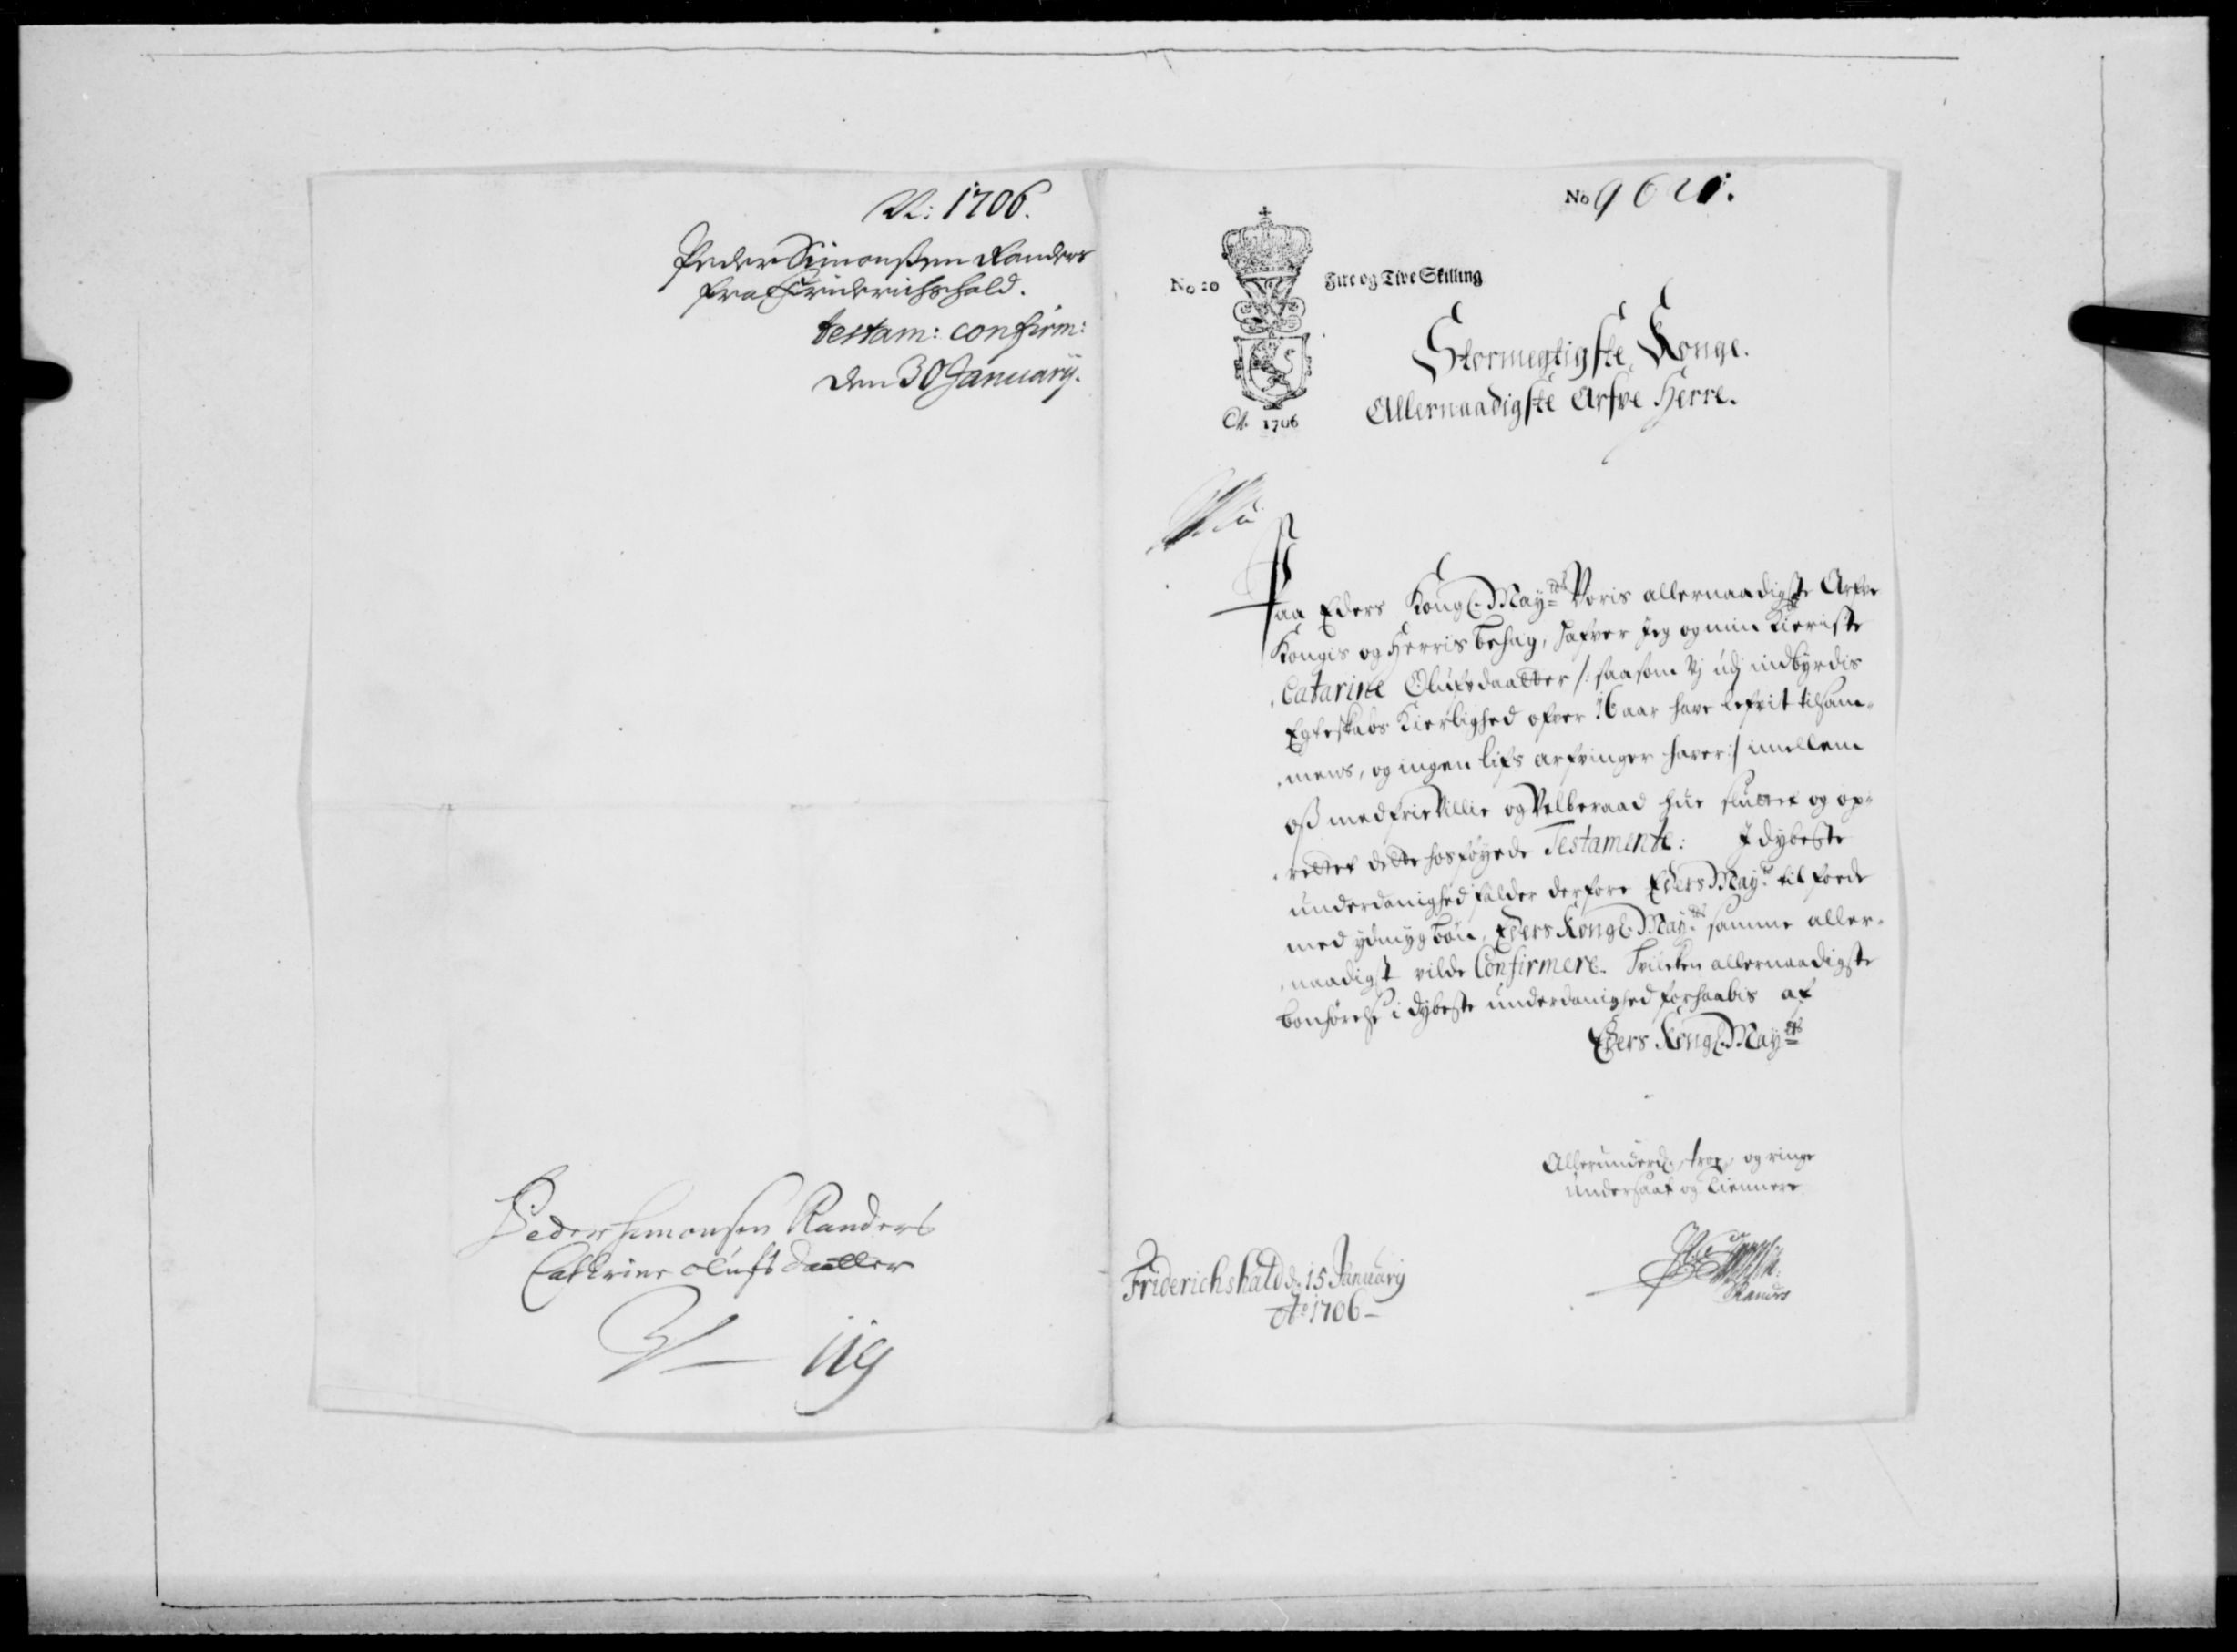 1706.
Peder Simonßen Randers
fra Friderichshald.
testam: confirm:
den 30 January.
Peder Simonsen Randers
Cathrine olufs daatter
119
No 962
No 20 Fire og Tive Skilling
A. 1706
Stormegtigste Konge.
Allernaadigste Arfve Herre.
Paa Eders Kongl. May:ts Voris allernaadigste Arfve
Kongis og Herris behag, hafver Jeg og min Kieriste
Catarine Olufsdaatter /: saasom Vj udj indbyrdis
Egteskabs Kierlighed ofver 16 aar have lefvit tilsam-
mens, og ingen lifs arfvinger haver :/ imellem
oß med frie Villie og Velberaad hue sluttet og op-
rettet dette hosføyede Testamente: I dybeste
underdanighed falder derfore Eders May:ts til foede
med ydmyg bøn, Eders Kongl. May:ts samme aller-
naadigst vilde Confirmere. Hvilcken allernaadigste
bønhørelse i dybeste underdanighed forhaabis af
Eders Kongl. May:ts
Allerunderd. troe og ringe
undersaat og tiennere
Randrs
Friderichshald d. 15 January
Ao 1706 -